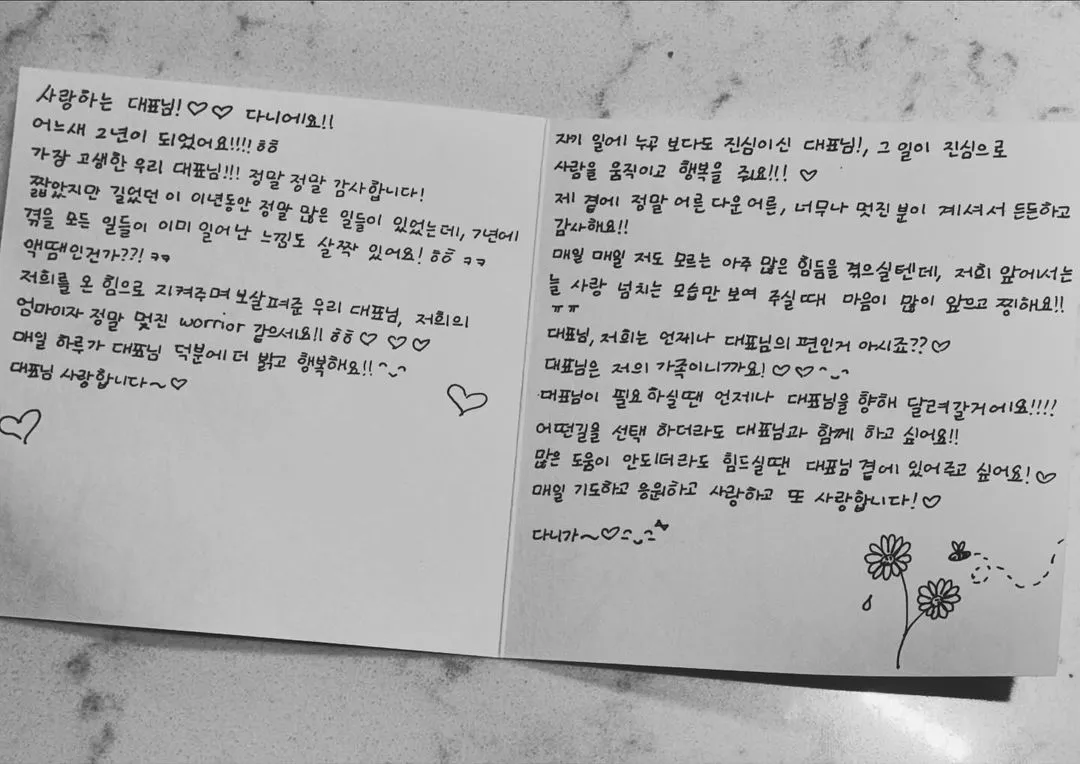 사랑하는 대표님!♡♡ 다니에요!!
어느새 2년이 되었어요!!!! ㅎㅎ
가장 고생한 우리 대표님!!! 정말 정말 감사합니다!
짧았지만 길었던 이 이년동안 정말 많은 일들이 있었는데, 7년에
겪을 모든 일들이 이미 일어난 느낌도 살짝 있어요! ㅎㅎ ㅋㅋ
액땜인건가??! ㅋㅋ
저희를 온 힘으로 지켜주며 보살펴준 우리 대표님, 저희의
엄마이자 정말 멋진 worrior 같으세요!! ㅎㅎ ♡ ♡ ♡
매일 하루가 대표님 덕분에 더 밝고 행복해요!! ^~^
대표님 사랑합니다~♡
자기 일에 누구 보다도 진심이신 대표님!, 그 일이 진심으로
사람을 움직이고 행복을 줘요!!! ♡
제 곁에 정말 어른 다운 어른, 너무나 멋진 분이 계셔서 든든하고
감사해요!!
매일 매일 저도 모르는 아주 많은 힘듬을 겪으실텐데, 저희 앞에서는
늘 사랑 넘치는 모습만 보여 주실 때 마음이 많이 앞으고 찡해요!!
ㅠㅠ
대표님, 저희는 언제나 대표님의 편인거 아시죠??♡
대표님은 저의 가족이니까요! ♡♡ ^~^
대표님이 필요하실땐 언제나 대표님을 향해 달려갈거에요!!!!
어떤길을 선택 하더라도 대표님과 함께 하고 싶어요!!
많은 도움이 안되더라도 힘드실땐 대표님 곁에 있어주고 싶어요!♡
매일 기도하고 응원하고 사랑하고 또 사랑합니다!♡
다니가~♡